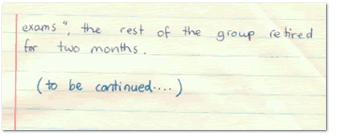 exams", the rest of the group retired
for two months.
(to be continued....)